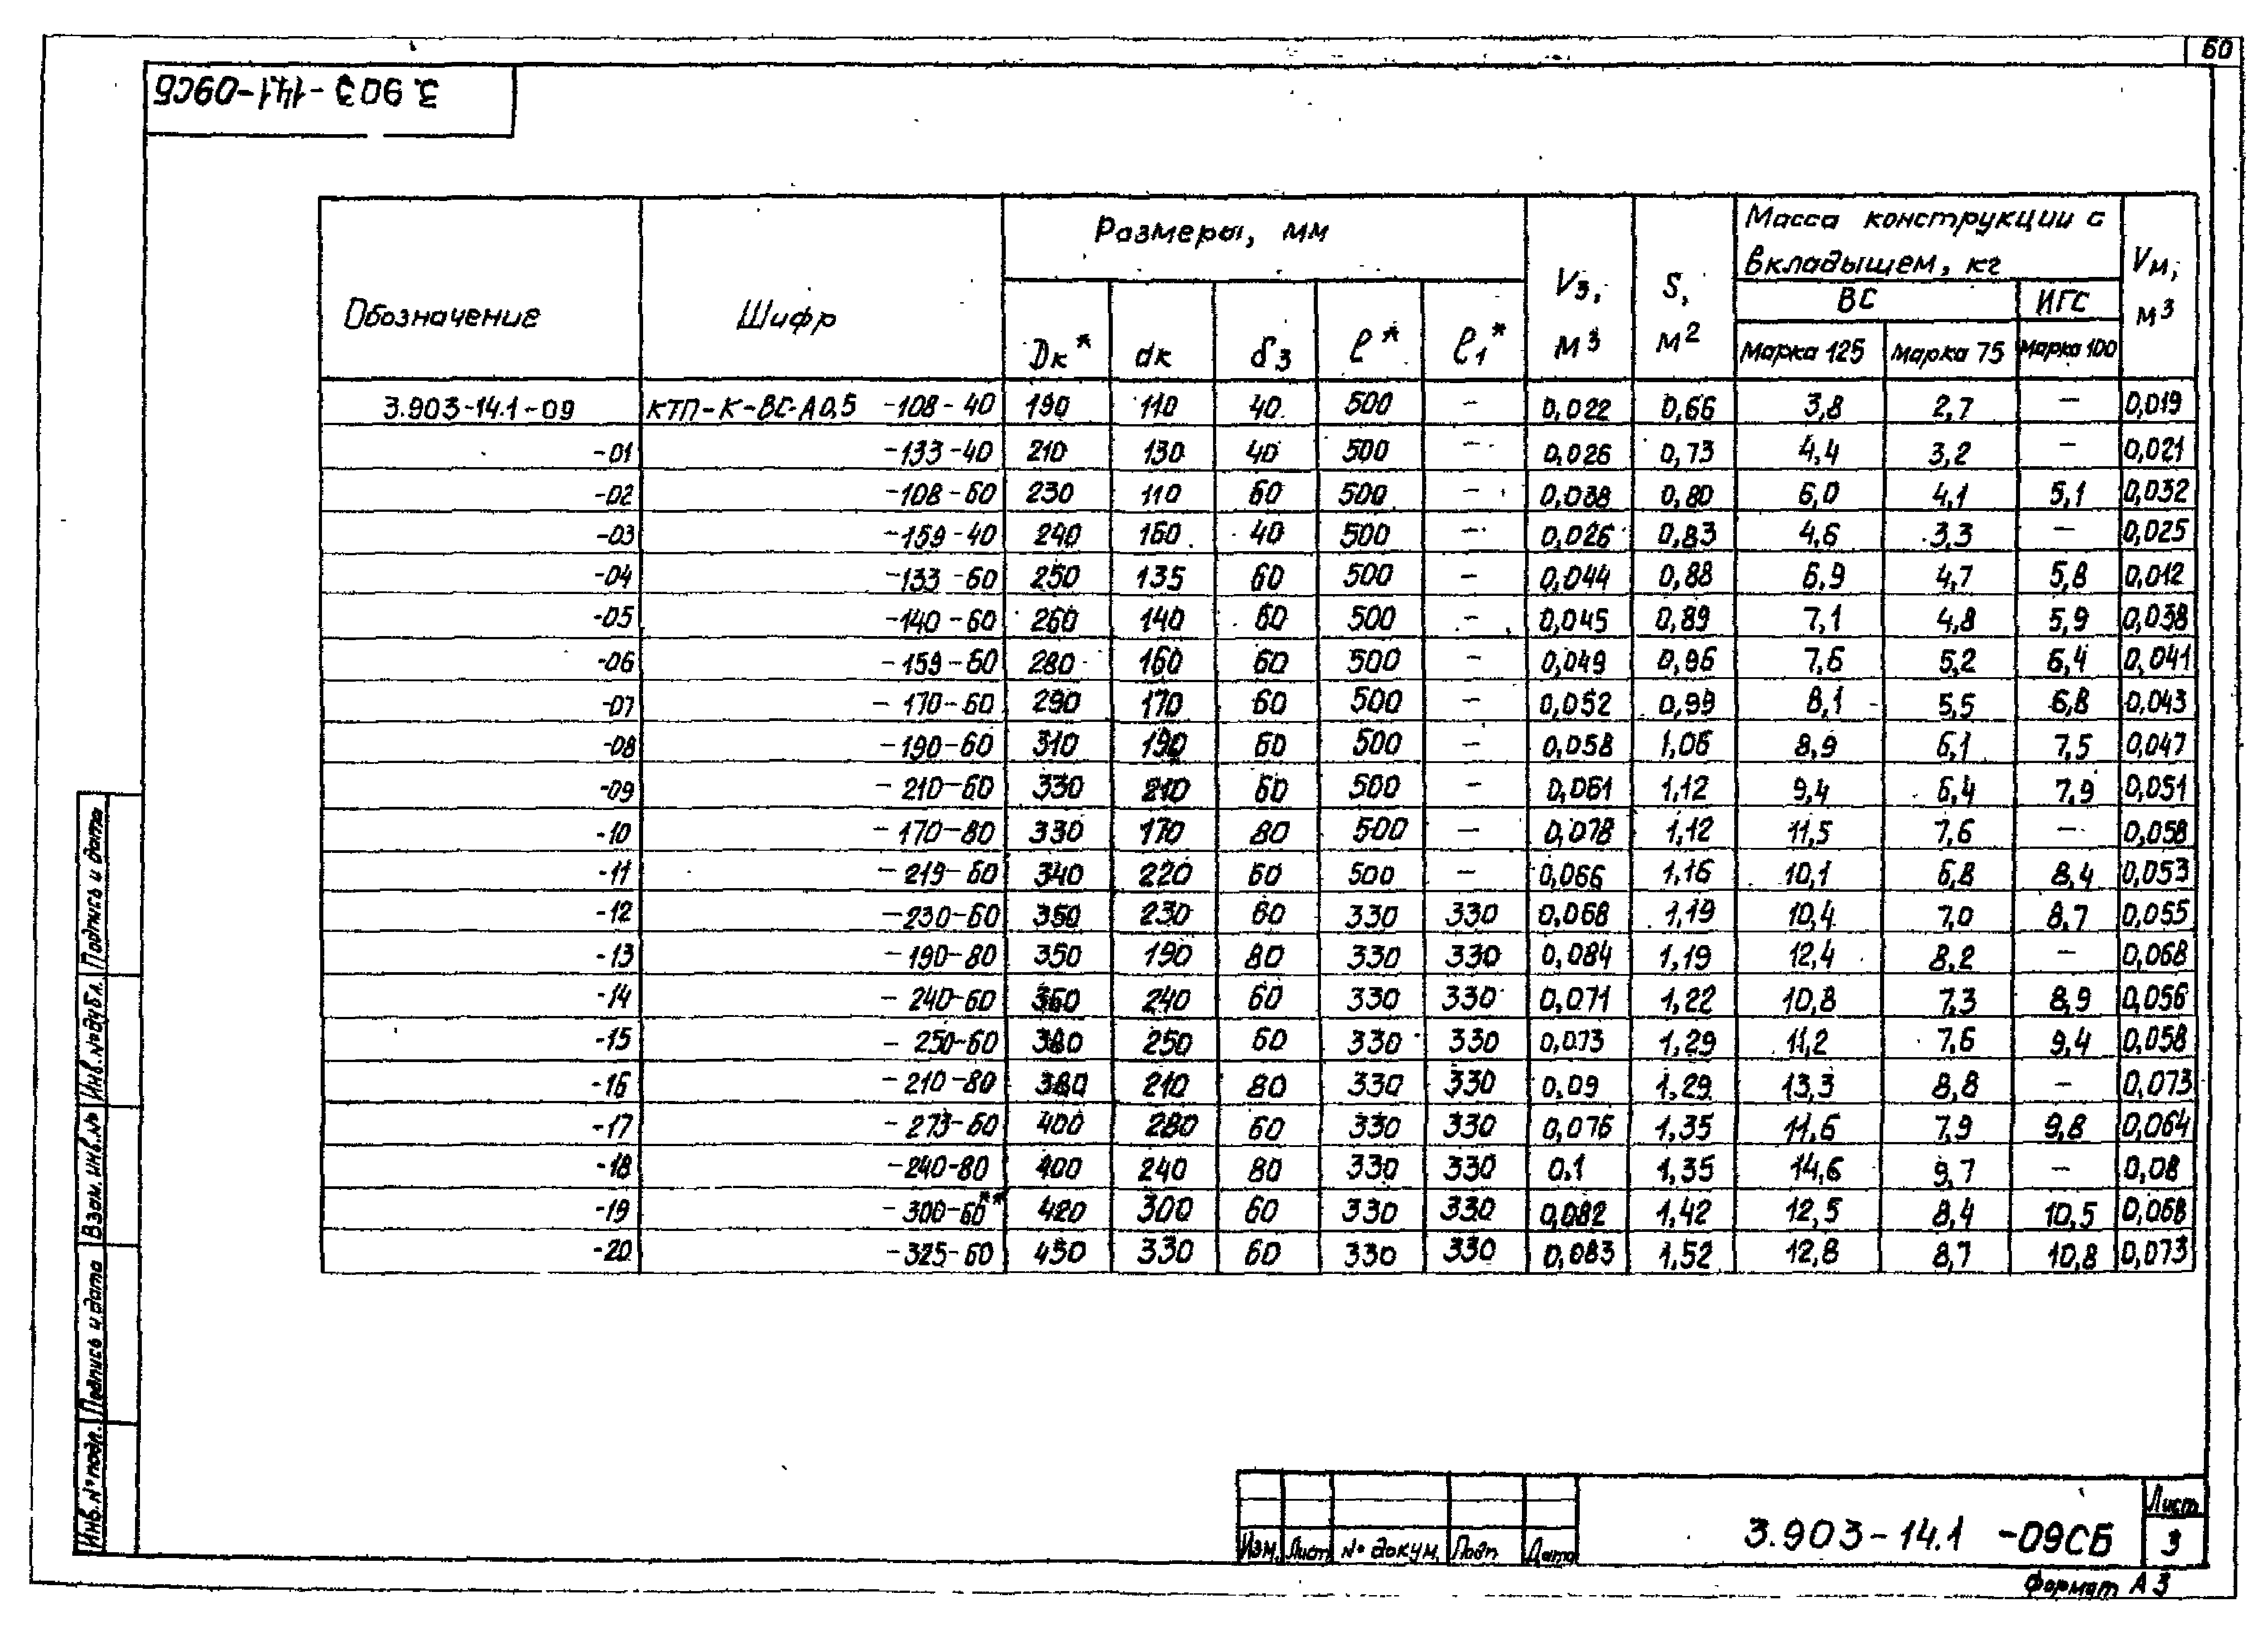 60
3.903-14.1-09СБ
Обозначение Шифр Размеры, мм Vз, м3 S, м2 Масса конструкции с вкладышем, кг Vм, м3
Dк* dк δз ℓ* ℓ1* ВС ИГС
Марка 125 Марка 75 Марка 100
3.903-14.1-09 КТП-К-ВС-А0,5 -108-40 190 110 40 500 - 0,022 0,66 3,8 2,7 - 0,019
-01 -133-40 210 130 40 500 - 0,026 0,73 4,4 3,2 - 0,021
-02 -108-60 230 110 60 500 - 0,038 0,80 6,0 4,1 5,1 0,032
-03 -159-40 240 160 40 500 - 0,026 0,83 4,6 3,3 - 0,025
-04 -133-60 250 135 60 500 - 0,044 0,88 6,9 4,7 5,8 0,012
-05 -140-60 260 140 60 500 - 0,045 0,89 7,1 4,8 5,9 0,038
-06 -159-60 280 160 60 500 - 0,049 0,96 7,6 5,2 6,4 0,041
-07 -170-60 290 170 60 500 - 0,052 0,99 8,1 5,5 6,8 0,043
-08 -190-60 310 190 60 500 - 0,058 1,06 8,9 6,1 7,5 0,047
-09 -210-60 330 210 60 500 - 0,061 1,12 9,4 6,4 7,9 0,051
-10 -170-80 330 170 80 500 - 0,078 1,12 11,5 7,6 - 0,058
-11 -219-60 340 220 60 500 - 0,066 1,16 10,1 6,8 8,4 0,053
-12 -230-60 350 230 60 330 330 0,068 1,19 10,4 7,0 8,7 0,055
-13 -190-80 350 190 80 330 330 0,084 1,19 12,4 8,2 - 0,068
-14 -240-60 360 240 60 330 330 0,071 1,22 10,8 7,3 8,9 0,056
-15 -250-60 380 250 60 330 330 0,073 1,29 11,2 7,6 9,4 0,058
-16 -210-80 380 210 80 330 330 0,09 1,29 13,3 8,8 - 0,073
-17 -273-60 400 280 60 330 330 0,076 1,35 11,6 7,9 9,8 0,064
-18 -240-80 400 240 80 330 330 0,1 1,35 14,6 9,7 - 0,08
-19 -300-60** 420 300 60 330 330 0,082 1,42 12,5 8,4 10,5 0,068
-20 -325-60 450 330 60 330 330 0,083 1,52 12,8 8,7 10,8 0,073
Инв.№ подл. Подпись и дата Взам. инв.№ Инв.№ дубл. Подпись и дата
Изм. Лист № докум. Подп. Дата
3.903-14.1 -09СБ
Лист
3
Формат А3